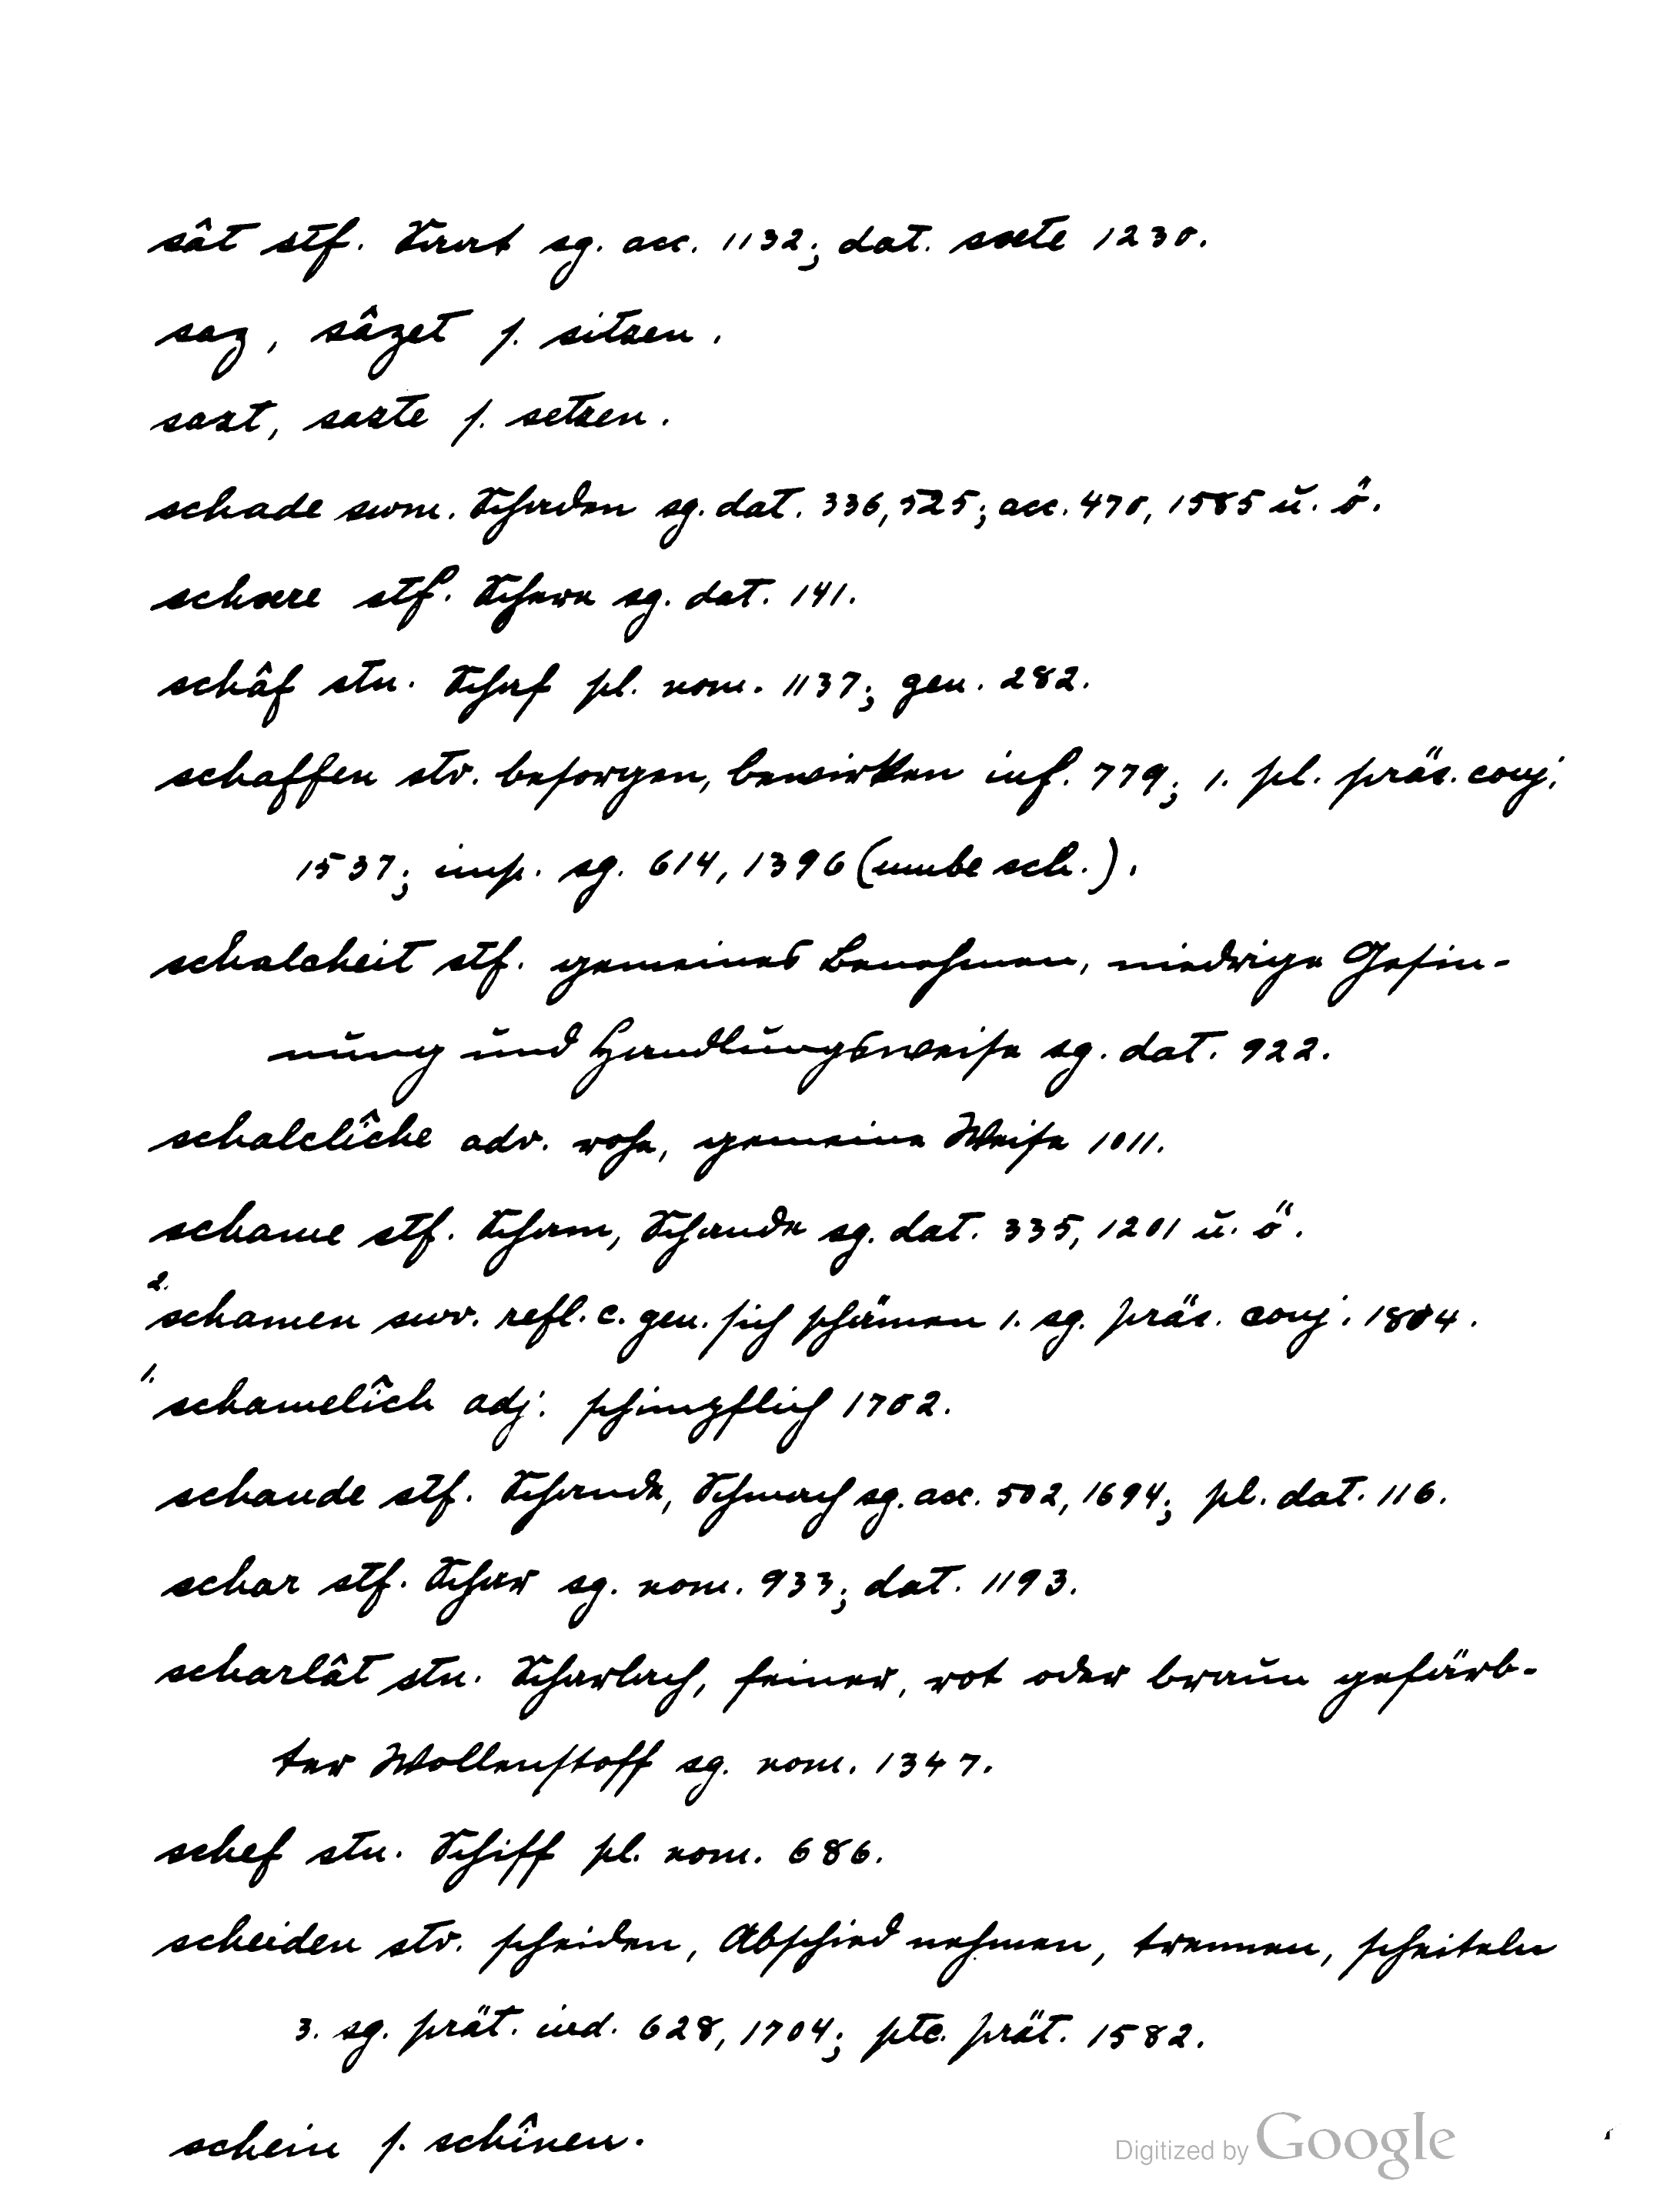 sât stf. Saat sg. acc. 1132; dat. saete 1230.
saz, sâzet s. sitzen.
sazt, sazte s. setzen.
schade swm. Schaden sg. dat. 336, 525; acc. 470, 1585 u. ö.
schaere stf. Schere sg. dat. 141.
schâf stn. Schaf pl. nom. 1137; gen. 282.
schaffen stv. besorgen, bewirken inf. 779; 1. pl. präs. conj.
1537; imp. sg. 614, 1396 (umbe sch.).
schalcheit stf. gemeines Benehmen, niedrige Gesin-
nung und Handlungsweise sg. dat. 922.
schalclîche adv. rohe, gemeine Weise 1011.
schame stf. Scham, Schande sg. dat. 335, 1201 u. ö.
2. schamen swv. refl. c. gen. sich schämen 1. sg. präs. conj. 1804.
1. schamelîch adj. schimpflich 1702.
schande stf. Schande, Schmach sg. acc. 502, 1694; pl. dat. 116.
schar stf. Schar sg. nom. 933; dat. 1193.
scharlât stn. Scharlach, feiner, rot oder braun gefärb-
ter Wollenstoff sg. nom. 1347.
schef stn. Schiff pl. nom. 686.
scheiden stv. scheiden, Abschied nehmen, trennen, scheiteln
3. sg. prät. ind. 628, 1704; ptc. prät. 1582.
schein s. schînen.
Digitized by Google